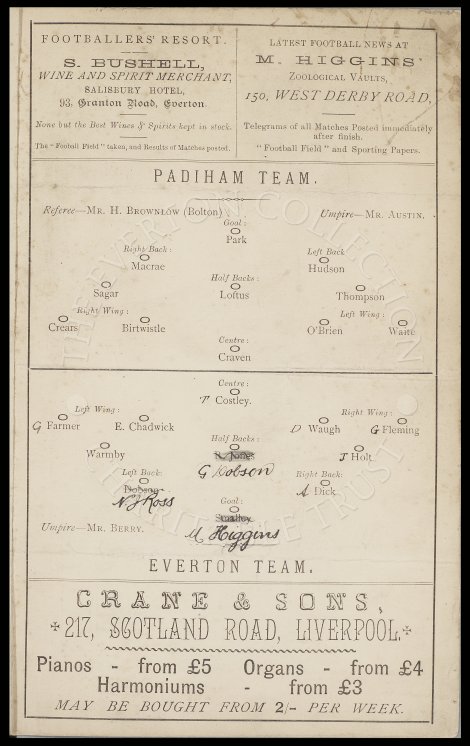 FOOTBALLERS' RESORT.
S. BUSHELL,
WINE AND SPIRIT MERCHANT,
SALISBURY HOTEL,
93, Granton Road, Everton.
None but the Best Wines & Spirits kept in stock.
The "Football Field" taken, and Results of Matches posted.
LATEST FOOTBALL NEWS AT
M. HIGGINS'
ZOOLOGICAL VAULTS,
150, WEST DERBY ROAD,
Telegrams of all Matches Posted immediately
after finish.
"Football Field" and Sporting Papers.
PADIHAM TEAM.
Referee—MR. H. BROWNLOW (Bolton)
Umpire—MR. AUSTIN.
Goal:
Park
Right Back:
Left Back
Macrae
Hudson
Half Backs:
Sagar
Loftus
Thompson
Right Wing:
Left Wing:
Crears
Birtwistle
O'Brien
Waite
Centre:
Craven
Centre:
Costley.
Left Wing:
Right Wing:
G Farmer
E. Chadwick
D Waugh
G Fleming
Half Backs:
Warmby
G Dobson
J Holt
Left Back:
Right Back:
Dobson
N J Ross
A Dick
Goal:
Smalley
M Higgins
Umpire—MR. BERRY.
EVERTON TEAM.
CRANE & SONS,
217, SCOTLAND ROAD, LIVERPOOL.
Pianos - from £5 Organs - from £4
Harmoniums - from £3
MAY BE BOUGHT FROM 2/- PER WEEK.
THE EVERTON COLLECTION
CHARITABLE TRUST